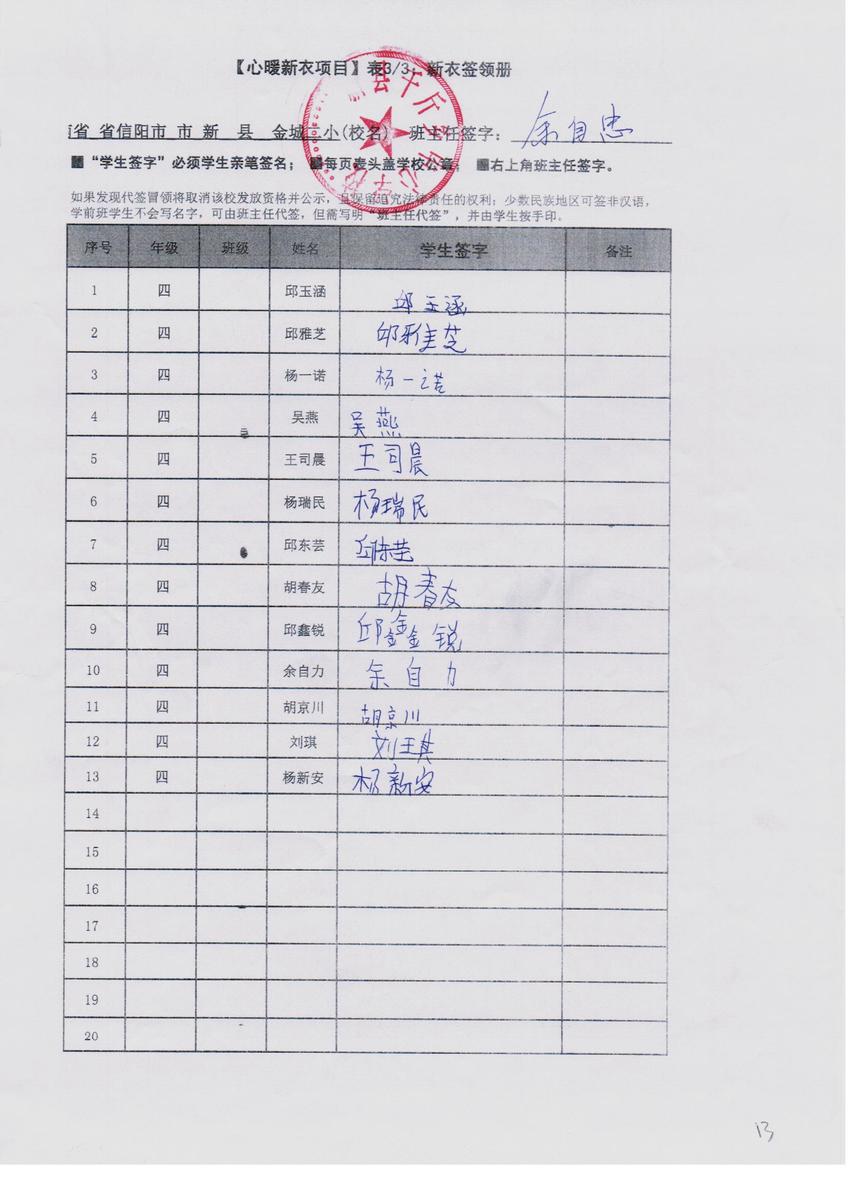 【心暖新衣项目】表3/3:新衣签领册
省 省信阳市 市 新 县 金城二小(校名) 班主任签字: 余自忠
“学生签字”必须学生亲笔签名; 每页表头盖学校公章; 右上角班主任签字。
如果发现代签冒领将取消该校发放资格并公示,且保留追究法律责任的权利;少数民族地区可签非汉语,
学前班学生不会写名字,可由班主任代签,但需写明“班主任代签”,并由学生按手印。
序号 年级 班级 姓名 学生签字 备注
1 四 邱玉涵 邱玉涵
2 四 邱雅芝 邱雅芝
3 四 杨一诺 杨一诺
4 四 吴燕 吴燕
5 四 王司晨 王司晨
6 四 杨瑞民 杨瑞民
7 四 邱东芸
8 四 胡春友 胡春友
9 四 邱鑫锐 邱鑫锐
10 四 余自力 余自力
11 四 胡京川 胡京川
12 四 刘琪 刘琪
13 四 杨新安 杨新安
14
15
16
17
18
19
20
13